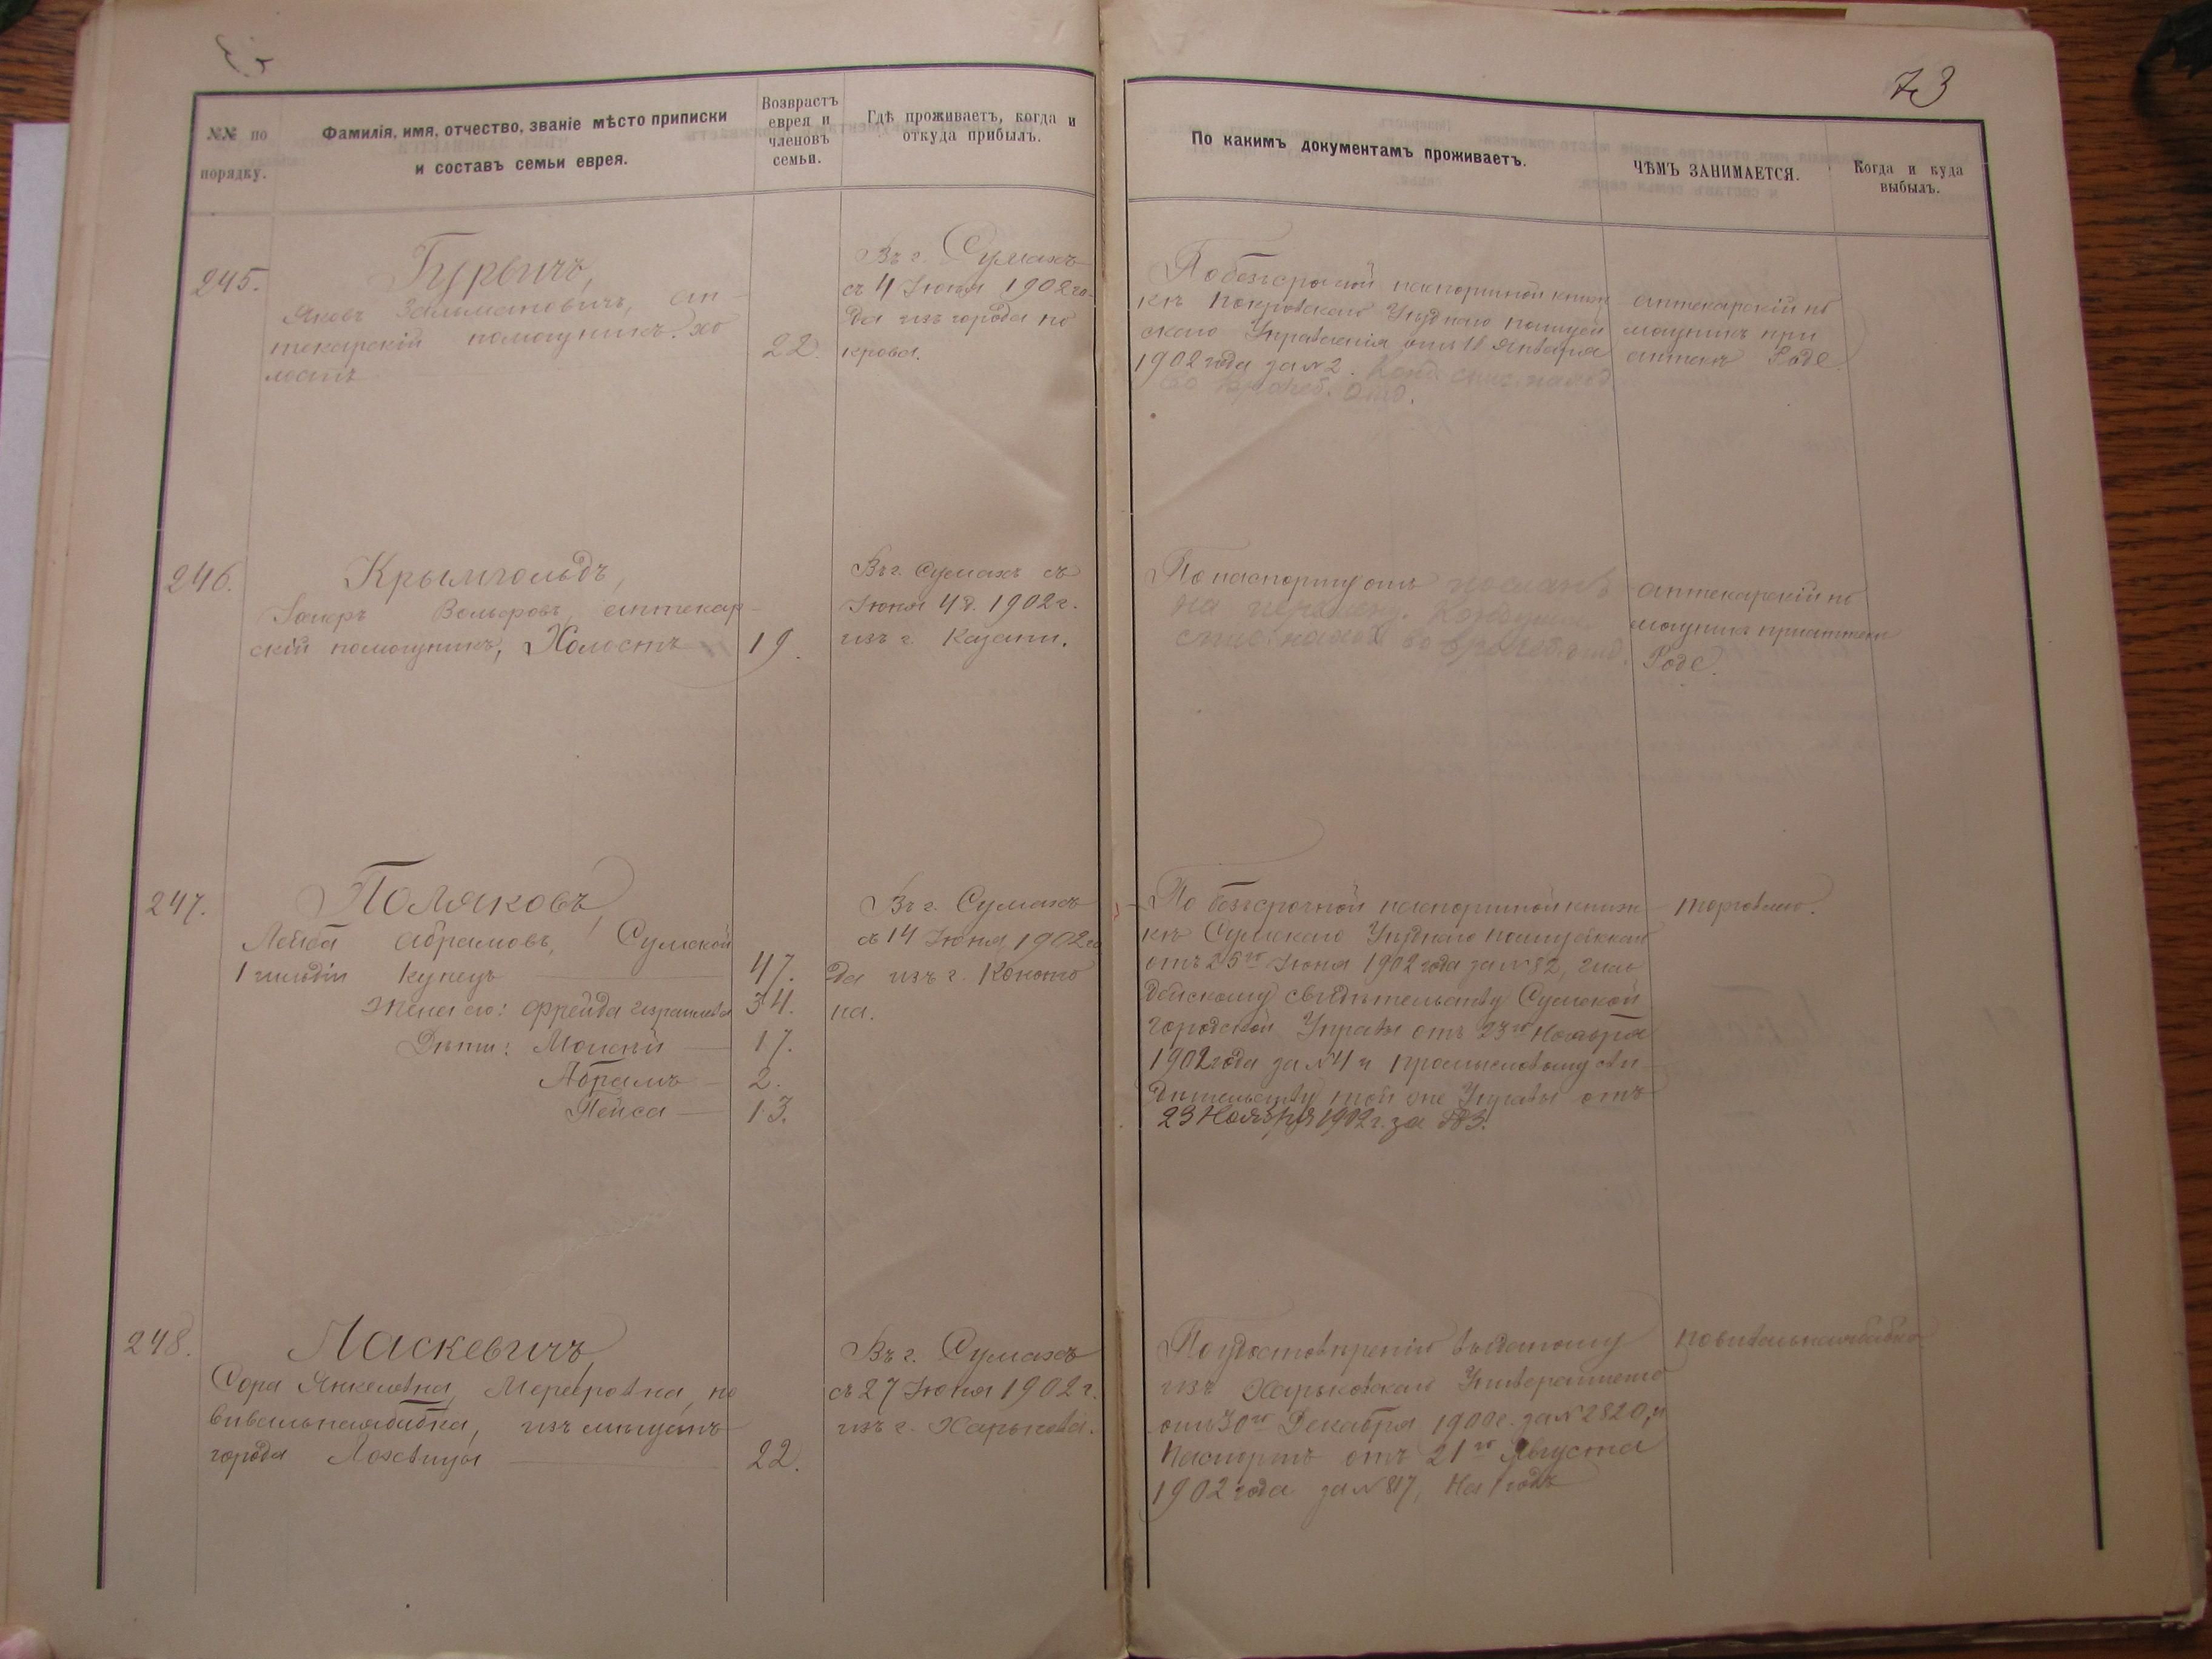 73
№№ по
порядку.
Фамилія, имя, отчество, званіе мѣсто приписки
и составъ семьи еврея.
Возврастъ
еврея и
членовъ
семьи.
Гдѣ проживаетъ, когда и
откуда прибылъ.
По какимъ документамъ проживаетъ.
ЧѢМЪ ЗАНИМАЕТСЯ.
Когда и куда
выбылъ.
245.
Гурвичъ,
Яковъ Залмановичъ, ап-
текарскій помощникъ. хо
лостъ
22.
Въ г. Сумахъ
съ 4 Іюня 1902 го-
да изъ города По
крова.
По безсрочной паспортной книж
кѣ Покровскаго Уѣзднаго полицей
скаго Управленія отъ 11 Января
1902 года за №2. Конд. спис. наход.
во врачеб. Отд.
аптекарскій по
мощникъ при
аптекѣ Роде.
246.
Крымгольдъ,
Вольфовъ, аптекар-
скій помощникъ, Холостъ
19.
Въ г. Сумахъ съ
Іюня 4 д. 1902 г.
изъ г. Казани.
По паспорту отъ
на
спис. наход во врачеб. отд.
аптекарскій по
мощникъ при аптекѣ
Роде.
247.
Поляковъ,
Лейба Абрамовъ, Сумской
1 гильдіи купецъ
47.
Жена его: Фрейда Израилева
34.
Дѣти: Моисей
17.
Абрамъ
2.
Пейса
13.
Въ г. Сумахъ
съ 14 Іюня 1902 го
да изъ г. Коното
па.
По безсрочной паспортной книж
кѣ Сумскаго Уѣзднаго
отъ 25го Іюня 1902 года за №82, гиль
дейскому свидѣтельству Сумской
городской Управы отъ 23го Ноября
1902 года за №4 и промысловому сви
дѣтельству той же Управы отъ
23 Ноября 1902 г. за 583.
торговлею.
248.
Ласкевичъ,
Сора Янкелевна Мееровна, по
вивальная бабка, изъ мѣщанъ
города Лохвицы
22.
Въ г. Сумахъ
съ 27 Іюня 1902 г.
изъ г. Харькова.
По удостовѣренію выданому
изъ Харьковскаго Университета
отъ 30го Декабря 1900 г. за №2820, и
паспортъ отъ 21го Августа
1902 года за №817, на 1 годъ
повивальная бабка.